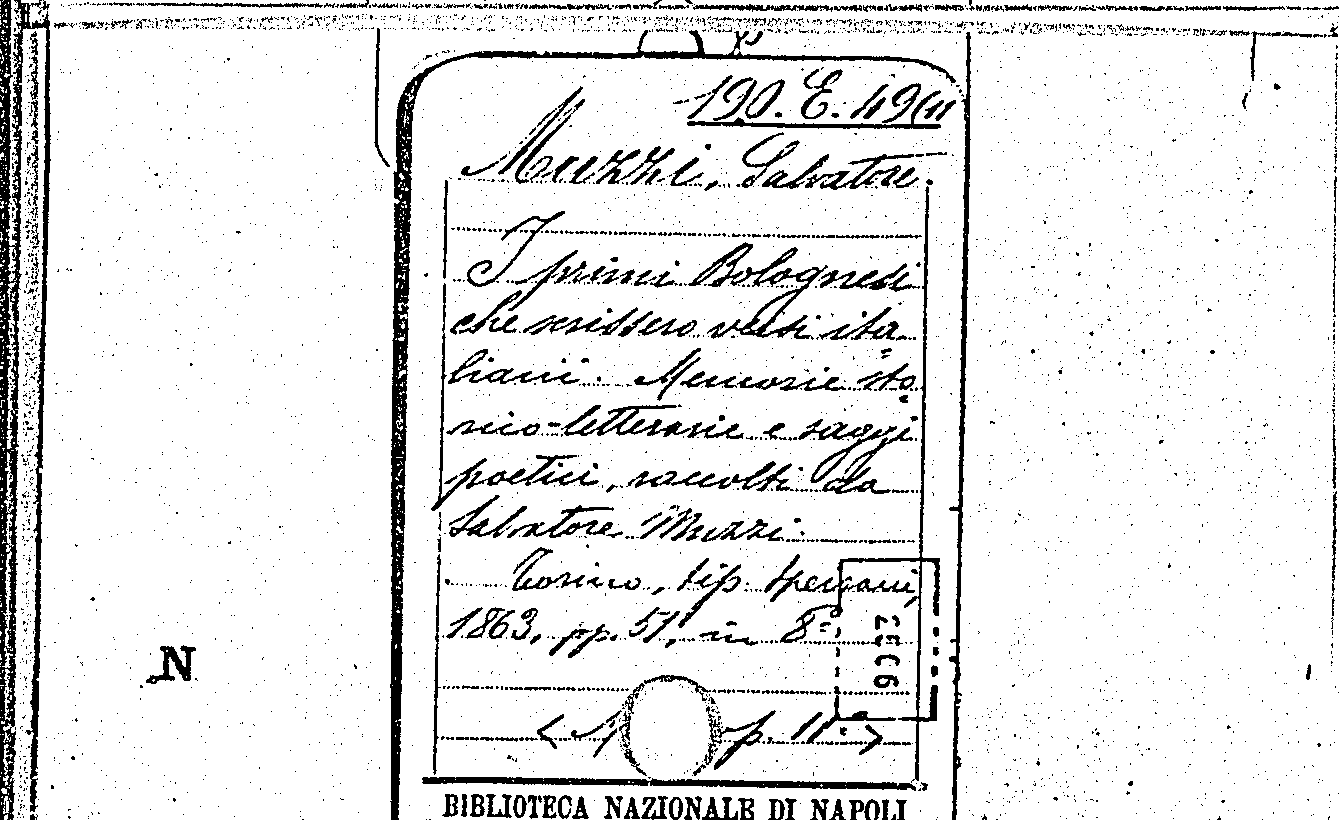 190. E. 49(11
Muzzi, Salvatore.
I primi Bolognesi
che scrissero versi ita
liani. Memorie sto
rico-letterarie e saggi
poetici, raccolti da
Salvatore Muzzi.
Torino, tip. Speirani,
1863, pp. 51, in 8°
p. 11.
N
BIBLIOTECA NAZIONALE DI NAPOLI